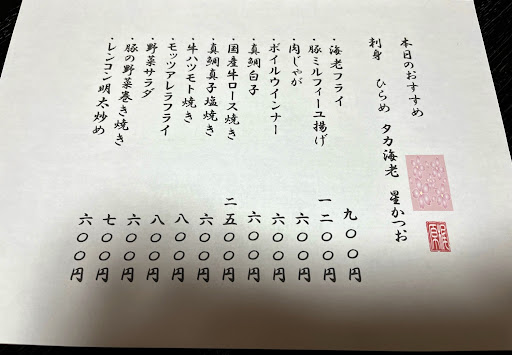 本日のおすすめ
刺身 ひらめ タカ海老 星かつお
・海老フライ 九〇〇円
・豚ミルフィーユ揚げ 一二〇〇円
・肉じゃが 六〇〇円
・ボイルウインナー 六〇〇円
・真鯛白子 六〇〇円
・国産牛ロース焼き 二五〇〇円
・真鯛真子塩焼き 六〇〇円
・牛ハツモト焼き 八〇〇円
・モッツアレラフライ 八〇〇円
・野菜サラダ 六〇〇円
・豚の野菜巻き焼き 七〇〇円
・レンコン明太炒め 六〇〇円